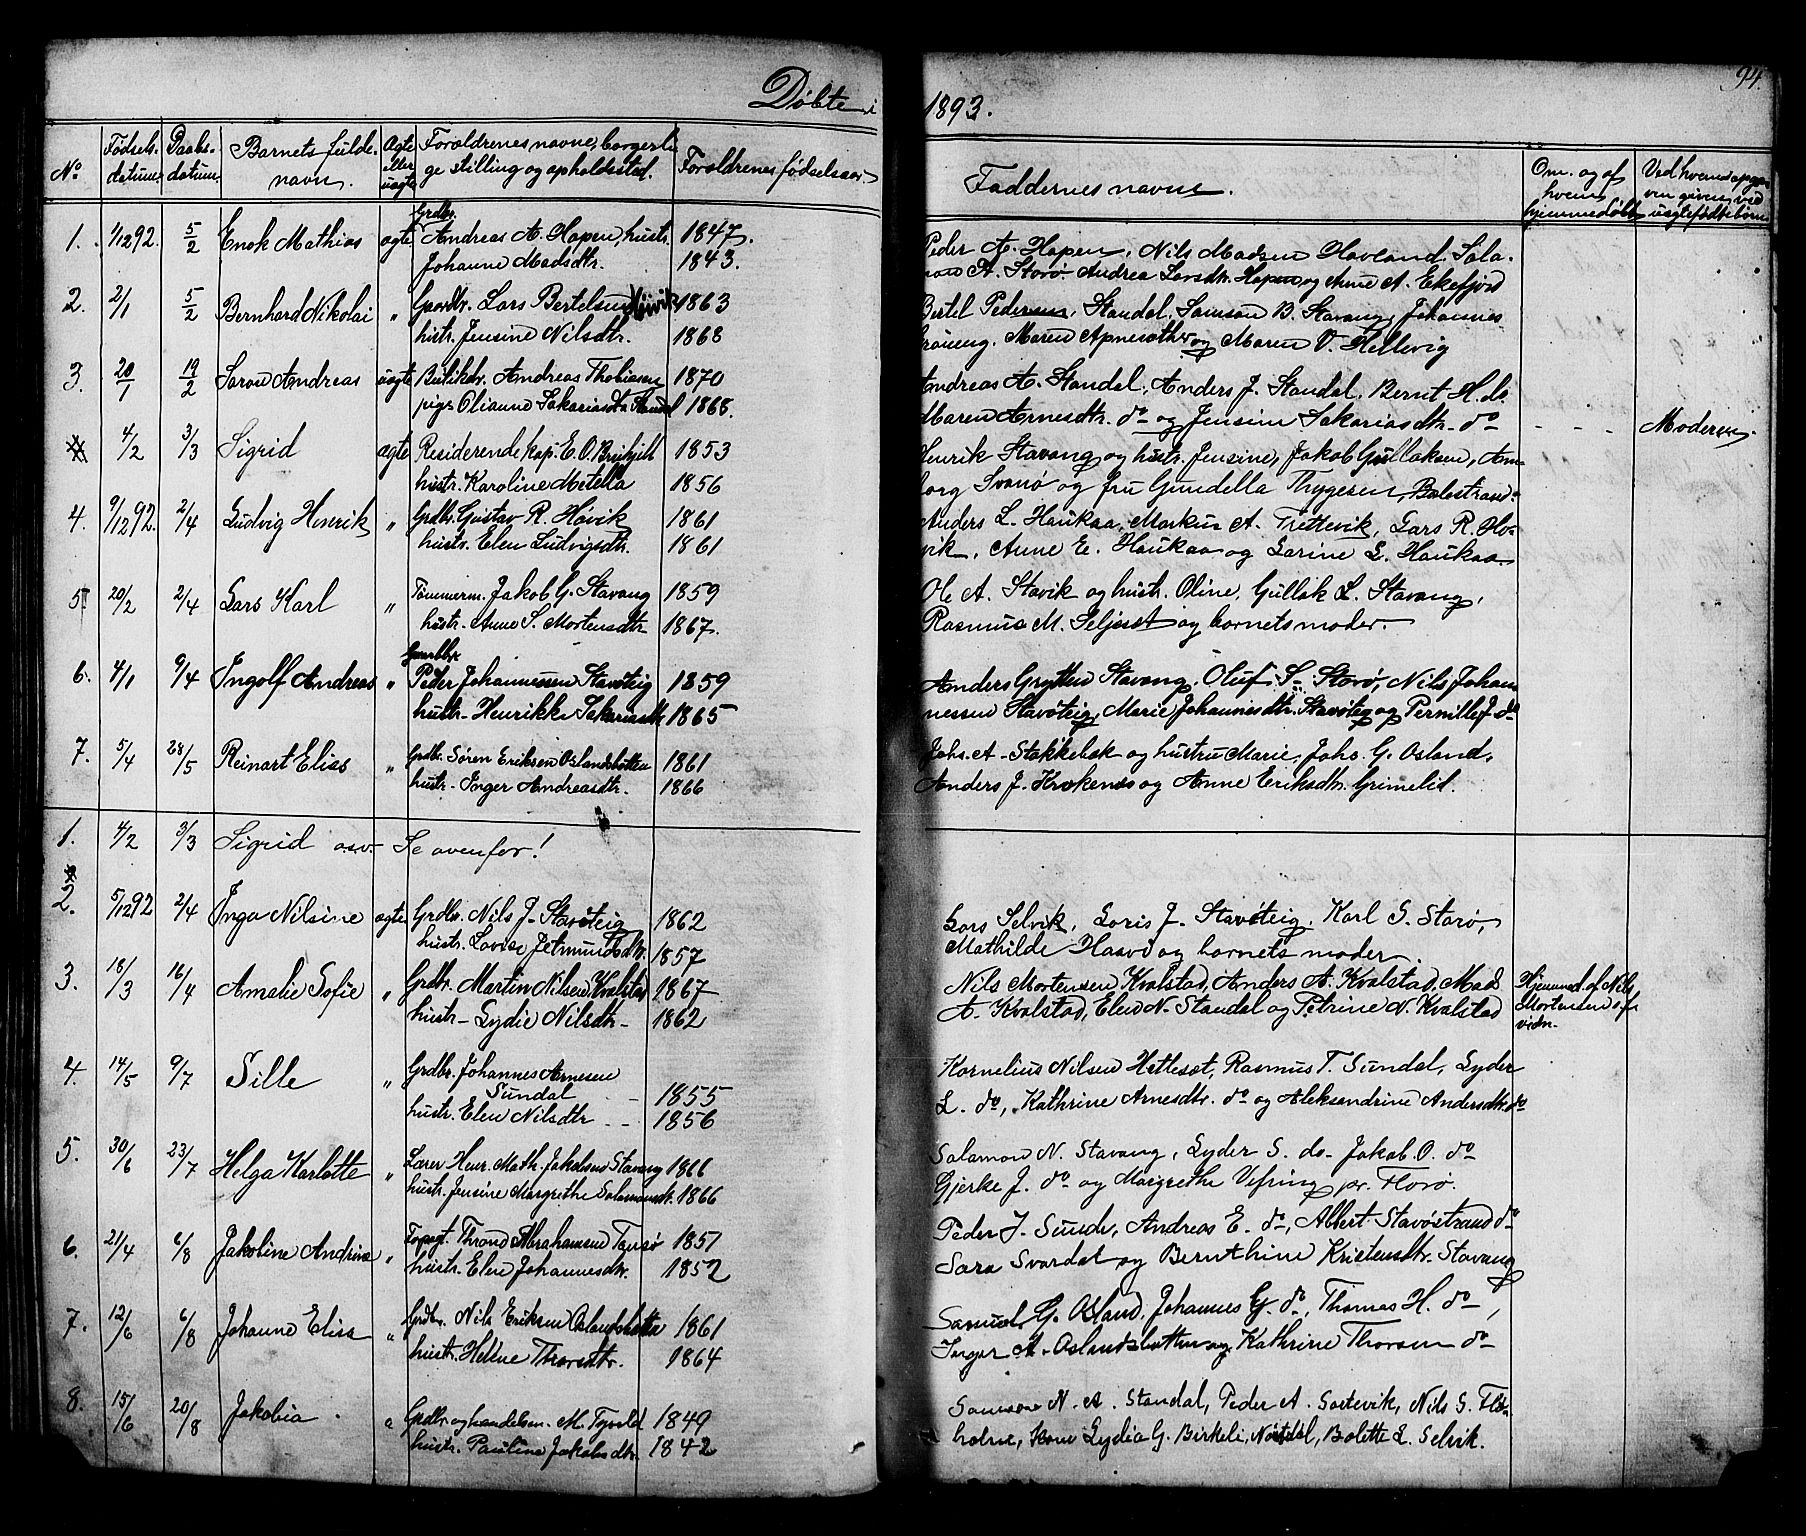 94.
Døbte i 1893.
No
Fødsels-datum.
Daabs-datum.
Barnets fulde navn.
Ægte eller uægte
Forældrenes navne, borgerlige stilling og opholdssted.
Forældrenes fødselsaar.
Faddernes navne.
Om og af hvem hjemmedøbt
Ved hvem opgaven given ved uægtefødte børn
1. 1/12 92. 5/2 Enok Mathias ægte Grdbr. Andreas A. Hopen, hustr. 1847. Peder A. Hopen, Nils Madsen Hovland, Sala-
Johanne Madsdtr. 1843. A. Storø Andrea Larsdtr. Hopen og Anne A. Ekefjord
2. 2/1 5/2 Bernhard Nikolai " Gaardbr. Lars Bertelsen 1863 Bertel Pedersen, Standal, Samson B. Stavang, Johannes
hustr. Jensine Nilsdtr. 1868 Maren og Maren V. Hellevig
3. 20/1 19/2 Andreas uægte Andreas Thobiasen 1870 Andreas A. Standal, Anders J. Standal, Bernt H. do
pige Olianne Sakariasdtr Standal 1868. Maren Arnesdtr. do og Jensine Sakariasdtr. do Moderen.
4/2 3/3 Sigrid ægte Residerende kap. E. O. 1853 Henrik Stavang og hustr. Jensine, Jakob Gullaksen, Am-
hustr. Karoline Metella 1856 borg Svanø og fru Gundella Thygesen Balestrand.
4. 9/12 92. 2/4 Ludvig Henrik " Grdbr. Gustav R. Høvik 1861 Anders L. Haukaa, Markus A. Trettevik, Lars R. Hø-
hustr. Elen Ludvigsdtr. 1861 vik, Anne E. Haukaa og Larine L. Haukaa.
5. 20/2 2/4 Lars Karl " Tømmerm. Jakob G. Stavang 1859 Ole A. Stavik og hustr. Oline, Gullak L. Stavang,
hustr. Anne S. Mortensdtr 1867. Rasmus M. Seljeset og barnets moder.
6. 4/1 9/4 Ingolf Andreas " Gaardbr. Peder Johannessen Stavøteig 1859 Anders Grytten Stavang, Oluf S. Storø, Nils Johan-
hustr. Henrikke Sakariasdtr 1865 nessen Stavøteig, Marie Johannesdtr. Stavøteig og Pernille J. do
7. 5/4 28/5 Reinart Elias " Grdbr. Søren Eriksen Oslandsbotten 1861 Johs. A. Stokkebæk og hustru Marie, Johs. G. Osland,
hustr. Inger Andreasdtr. 1866 Anders J. Krokenes og Anne Eriksdtr. Grimelid.
1. 4/2 3/3 Sigrid osv. Se ovenfor!
2. 5/12 92 2/4 Inga Nilsine ægte Grdbr. Nils J. Stavøteig 1862 Lars Selvik, Loris J. Stavøteig, Karl S. Storø,
hustr. Lovise Jetmundsdtr. 1857 Mathilde Hasvo og barnets moder.
3. 18/3 16/4 Amalie Sofie " Grdbr. Martin Nilsen Kvalstad 1867 Nils Mortensen Kvalstad, Anders A. Kvalstad, Mads Hjemmed. af Nils
hustr. Lydie Nilsdtr. 1862 A. Kvalstad, Elen N. Standal og Petrine N. Kvalstad Mortensen
4. 14/5 9/7 Sille " Grdbr. Johannes Arnesen Kornelius Nilsen Hetleset, Rasmus T. Sundal, Lyder
Sundal 1855
hustr. Elen Nilsdtr 1856 L. do, Kathrine Arnesdtr. do og Aleksandrine Andersdtr. do
5. 30/6 23/7 Helga Karlotte " Lærer Henr. Math. Jakobsen Stavang 1866 Salamon N. Stavang, Lyder S. do Jakob O. do
hustr. Jensine Margrethe Salamonsdtr. 1866 Gjerke J. do og Margrethe Vefring pr. Florø.
6. 21/4 6/8 Jakobine Andrine " Thrond Abrahamsen Tansø 1851 Peder J. Sunde, Andreas E. do, Albert Stavøstrand do
hustr. Elen Johannesdtr. 1852 Sara Svardal og Bernthine Kristensdtr. Stavang
7. 12/6 6/8 Johanne Elise " Grdbr. Nils Eriksen Oslandsbotten 1861 Samuel G. Osland, Johannes G. do, Thomas H. do,
hustr. Helene Thorsdtr. 1864 Inger A. Oslandsbotten og Kathrine Thorsen do
8. 15/6 20/8 Jakobia. " Grdbr. og handelsm. M. Tyvold 1849 Samson N. A. Standal, Peder A. Sortevik, Nils S. Flo-
hustr. Pauline Jakobsdtr. 1842 holme, Kone Lydia G. Birkeli, Norddal, Bolette L. Selvik.